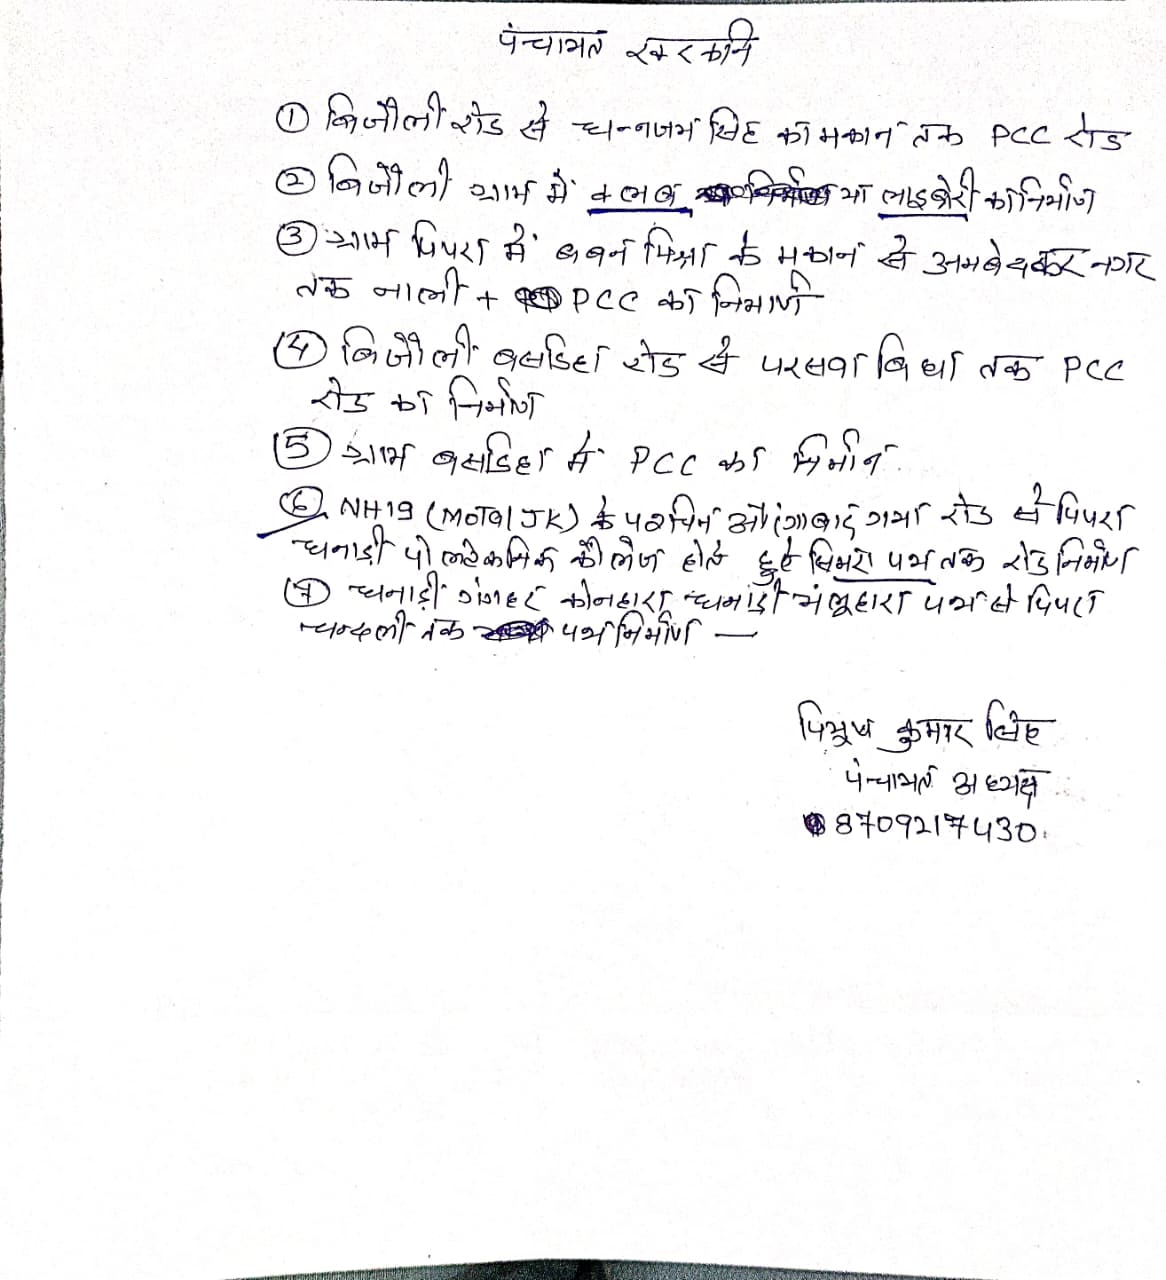 पंचायत खरकनि
① बिजौली रोड से धनन्जय सिंह का मकान तक PCC रोड
② बिजौली ग्राम में क्लब या लाइब्रेरी का निर्माण
③ ग्राम पिपरा में बबन मिश्रा के मकान से अमबेथकर नगर
तक नाली + PCC का निमार्ण
④ बिजौली बसडिहा रोड से परसवा बिघा तक PCC
रोड का निर्माण
⑤ ग्राम बसडिहा में PCC का निर्मान
⑥ NH19 (MOTAL JK) के पश्चिम औरंगाबाद गया रोड से पिपरा
धनाड़ी पोलटेकमिक कौलेज होते हुए सिमरा पथ तक रोड निर्माण
⑦ धनाड़ी कोनहारा पथ से पिपरा
तक पथ निर्माण —
पियुष कुमार सिंह
पंचायत अध्यक्ष
8709217430